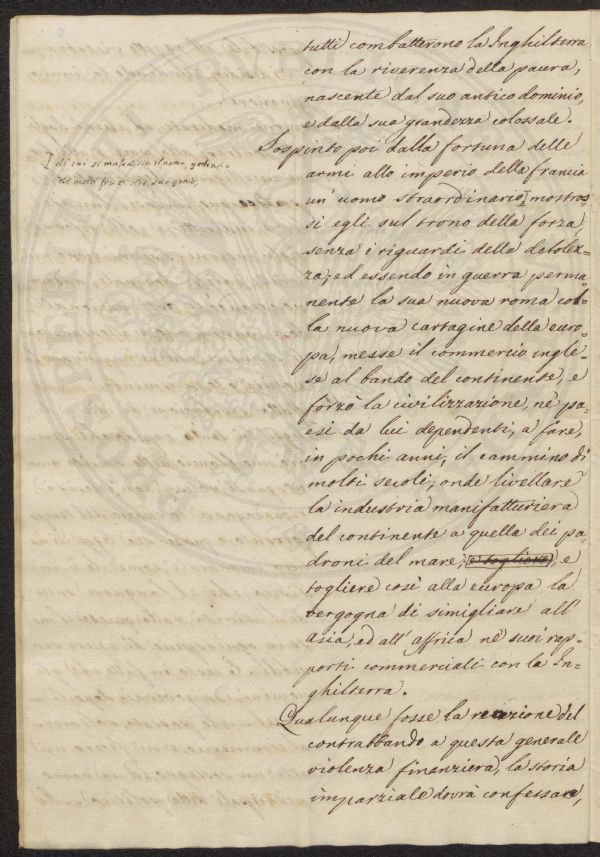 tutti combatterono la Inghilterra
con la riverenza della paura,
nascente dal suo antico dominio,
e dalla sua grandezza colossale.
Sospinto poi dalla fortuna delle
armi allo imperio della francia
un' uomo straordinario, mostros=
si egli sul trono della forza
senza i riguardi della debolez=
za; ed essendo in guerra perma=
nente la sua nuova roma col=
la nuova cartagine della euro=
pa, messe il commercio ingle=
se al bando del continente, e
forzò la civilizzazione, ne' pa=
esi da lui dependenti, a fare,
in pochi anni, il cammino di
molti secoli, onde livellare
la industria manifatturiera
del continente a quella dei pa=
droni del mare, e togliere, e
togliere così alla europa la
vergogna di simigliare all'
asia, ed all' affrica ne' suoi rap=
porti commerciali con la In=
ghilterra.
Qualunque fosse la reazione del
contrabbando a questa generale
violenza finanziera, la storia
imparziale dovrà confessare,
di cui si maledisce il nome, godendo
di molti frutti del suo genio,